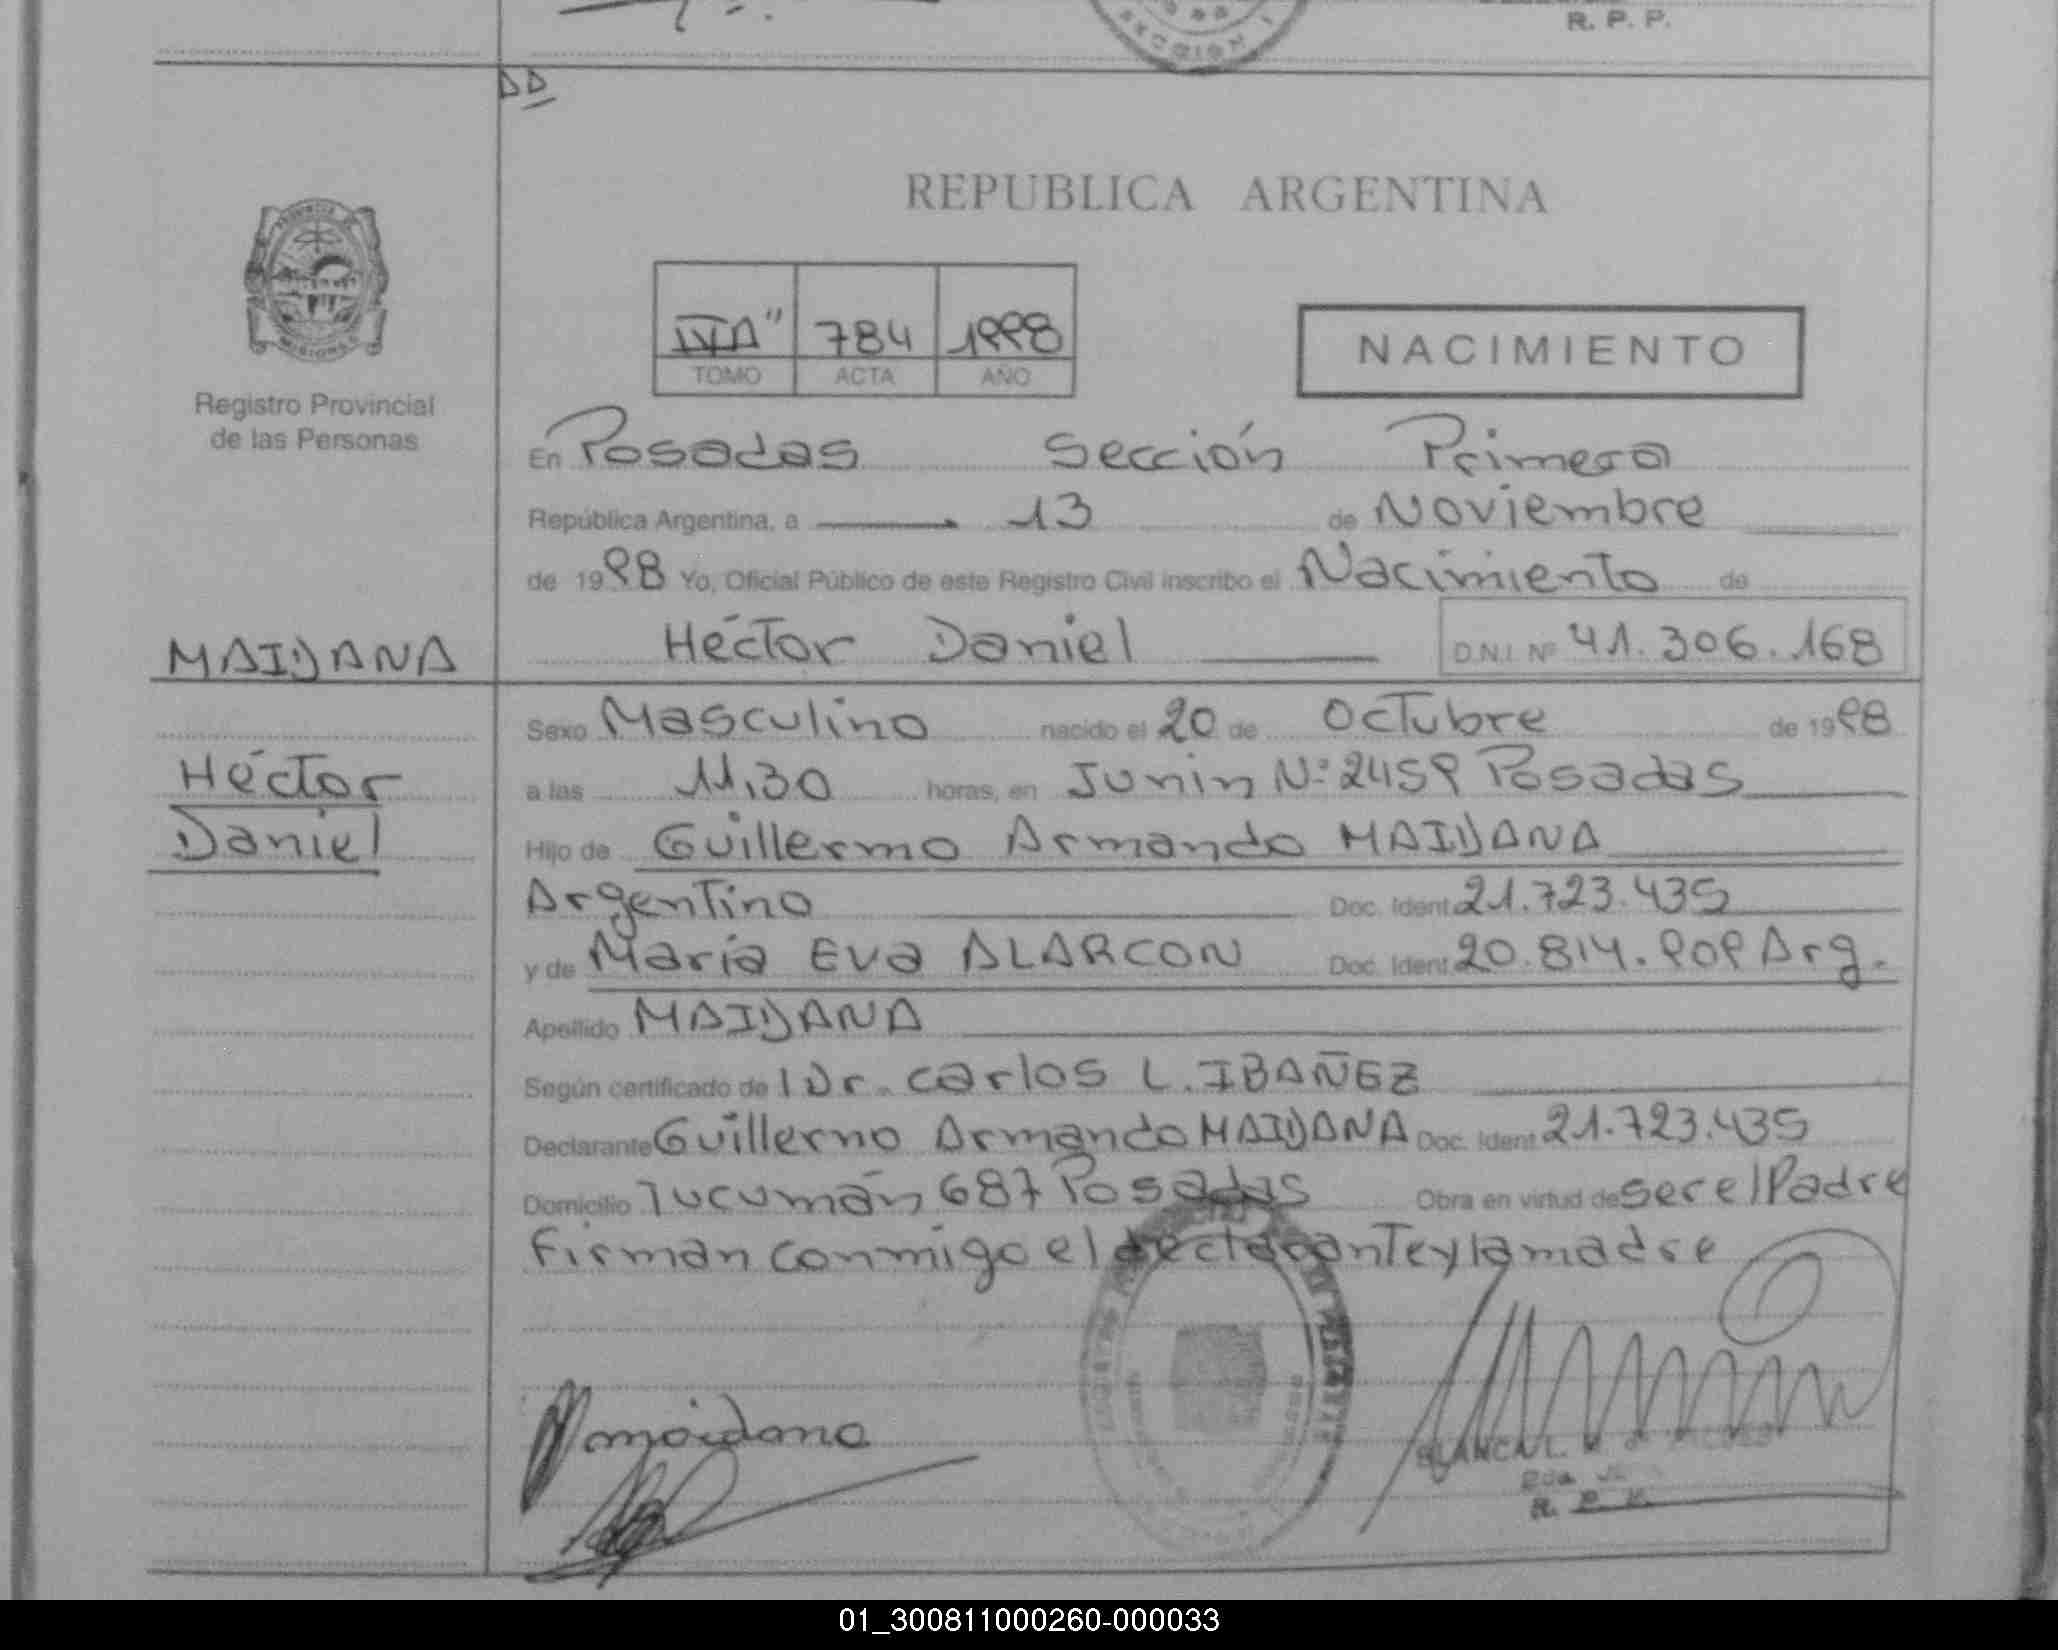 R. P. P.
SECCION 1
DD
REPUBLICA ARGENTINA
PROVINCIA DE
MISIONES
Registro Provincial
de las Personas
IVA" 784 1998
TOMO ACTA AÑO
NACIMIENTO
En Posadas Sección Primera
República Argentina, a 13 de Noviembre
de 1998 Yo, Oficial Público de este Registro Civil inscribo el Nacimiento de
MAIDANA
Héctor Daniel D.N.I. Nº 41.306.168
Sexo Masculino nacido el 20 de Octubre de 1998
Héctor
Daniel
a las 11,30 horas, en Junin Nº 2459 Posadas
Hijo de Guillermo Armando MAIDANA
Argentino Doc. Ident 21.723.435
y de María Eva ALARCON Doc. Ident 20.814.909 Arg.
Apellido MAIDANA
Según certificado de Dr. Carlos L. IBAÑEZ
Declarante Guillermo Armando MAIDANA Doc. Ident 21.723.435
Domicilio Tucumán 687 Posadas Obra en virtud de ser el Padre
Firman conmigo el declarante y la madre
maidana
BLANCA L.
01_300811000260-000033